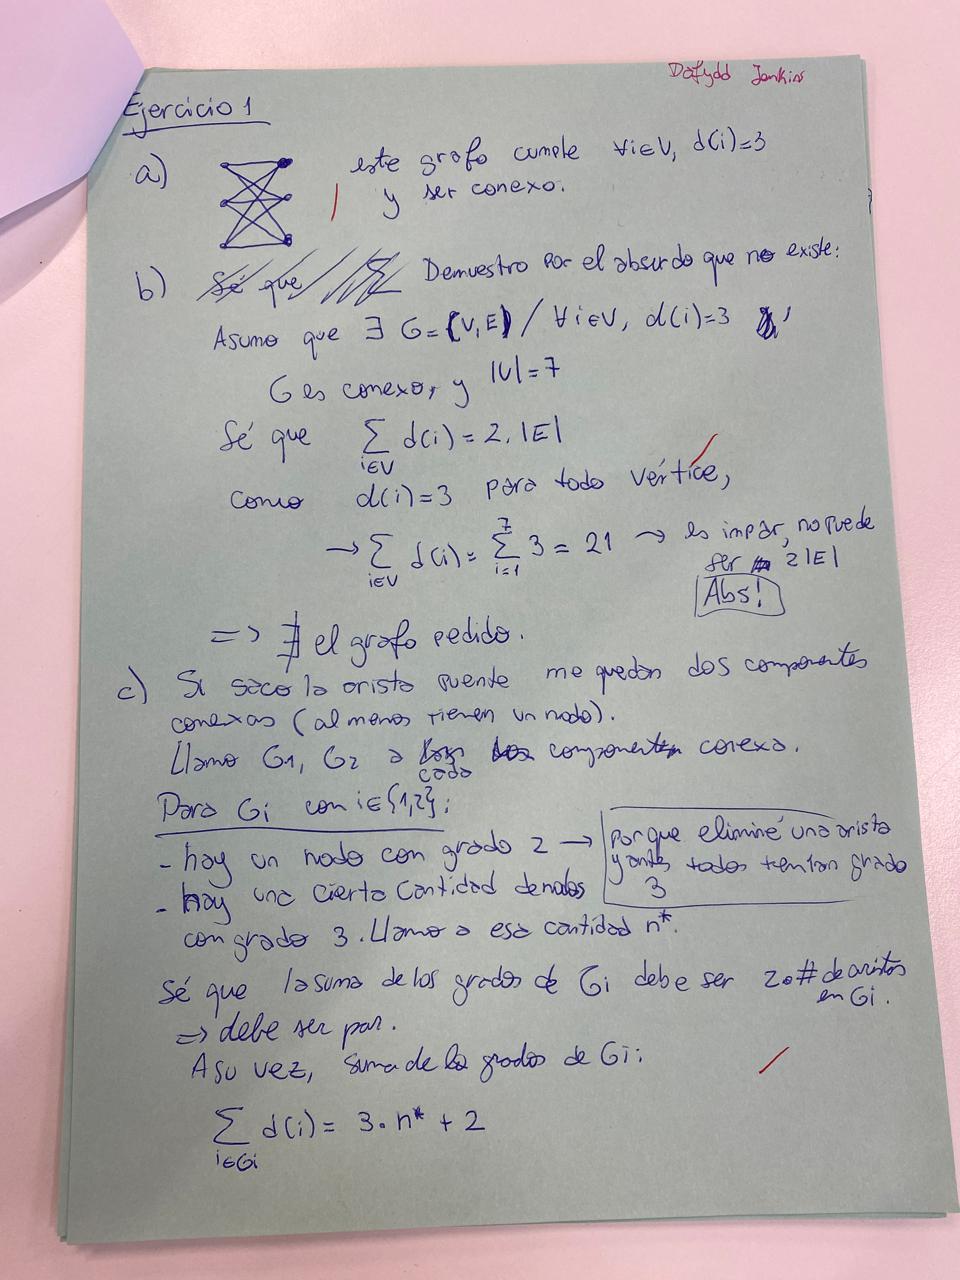 Dafydd Jenkins
Ejercicio 1
a) este grafo cumple ∀i∈V, d(i)=3
y ser conexo.
b) Sé que Demuestro por el absurdo que no existe:
Asumo que ∃ G=(V,E) / ∀i∈V, d(i)=3 ,
G es conexo, y |V|=7
Sé que ∑ d(i) = 2.|E|
i∈V
como d(i)=3 para todo vértice,
→ ∑ d(i) = ∑ 3 = 21 → es impar, no puede
i∈V 7 i=1
ser 2|E|
Abs!
=> ∄ el grafo pedido.
c) Si saco la arista puente me quedan dos componentes
conexas (al menos tienen un nodo).
Llamo G1, G2 a cada componente conexa.
Para Gi con i∈{1,2}:
- hay un nodo con grado 2 → porque eliminé una arista
y antes todos tenían grado
3
- hay una cierta cantidad de nodos
con grado 3. Llamo a esa cantidad n*.
Sé que la suma de los grados de Gi debe ser 2.# de aristas
en Gi.
=> debe ser par.
A su vez, suma de los grados de Gi:
∑ d(i) = 3.n* + 2
i∈Gi